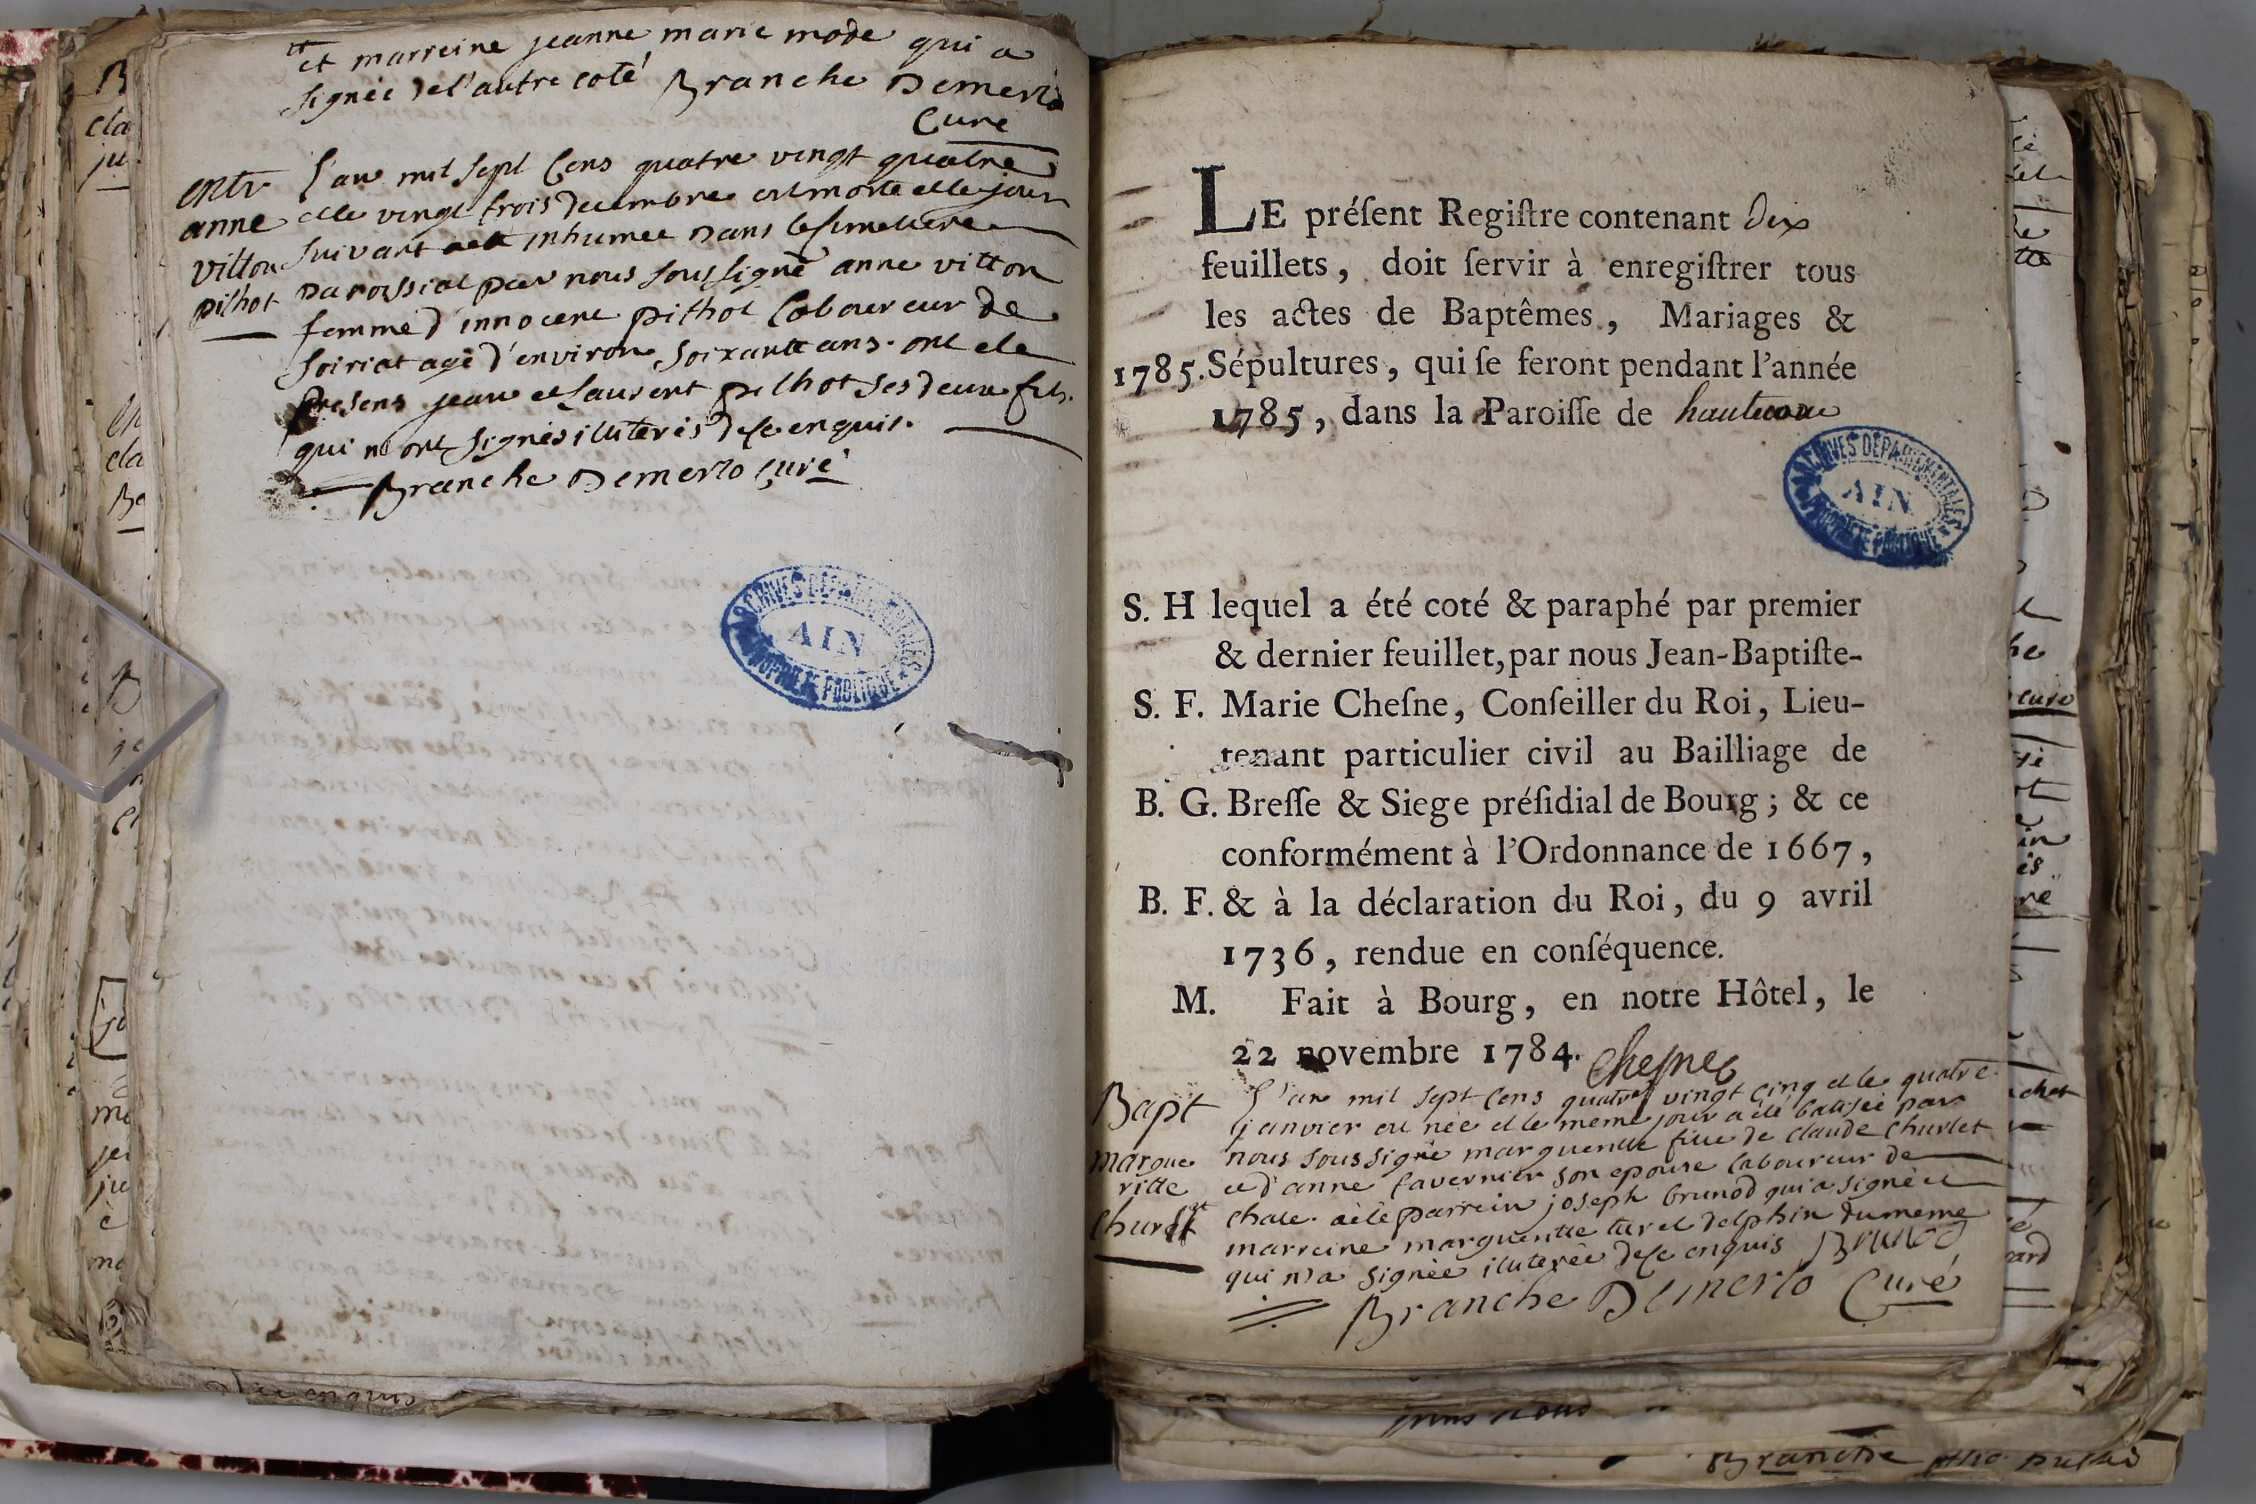 et marreine jeanne marie mode qui a
signée de l'autre coté Branche Demerlo
Curé
entr
anne
vitton
pilhot
L'an mil sept Cens quatre vingt quatre
et le vingt trois decembre est morte et le jour
suivant a eté inhumee Dans le simetiere
paroissial par nous soussigné anne vitton
femme d'innocent pilhot laboureur de
soiriat agé d'environ soixante ans. ont eté
presens jean et laurent pilhot ses deux fils
qui n'ont signés illiterés de ce enquis.
Branche Demerlo curé
ARCHIVES DEPARTEMENTALES
AIN
PROPRIETE PUBLIQUE
LE préſent Regiſtre contenant dix
feuillets, doit ſervir à enregiſtrer tous
les actes de Baptêmes, Mariages &
1785. Sépultures, qui ſe feront pendant l'année
1785, dans la Paroiſſe de hautecour
ARCHIVES DEPARTEMENTALES
AIN
PROPRIETE PUBLIQUE
S. H lequel a été coté & paraphé par premier
& dernier feuillet, par nous Jean-Baptiſte-
S. F. Marie Cheſne, Conſeiller du Roi, Lieu-
tenant particulier civil au Bailliage de
B. G. Breſſe & Siege préſidial de Bourg; & ce
conformément à l'Ordonnance de 1667,
B. F. & à la déclaration du Roi, du 9 avril
1736, rendue en conſéquence.
M. Fait à Bourg, en notre Hôtel, le
22 novembre 1784. Chesne
Bapt
margue
ritte
Churlet
L'an mil sept Cens quatre vingt cinq et le quatre
janvier est née et le meme jour a été batisée par
nous soussigné margueritte fille de claude Churlet
et d'anne tavernier son epouse laboureur de
chale. a eté parrein joseph brunod qui a signé et
marreine margueritte turel delphin du meme
qui n'a signée illiterée de ce enquis Brunod
Branche Demerlo Curé